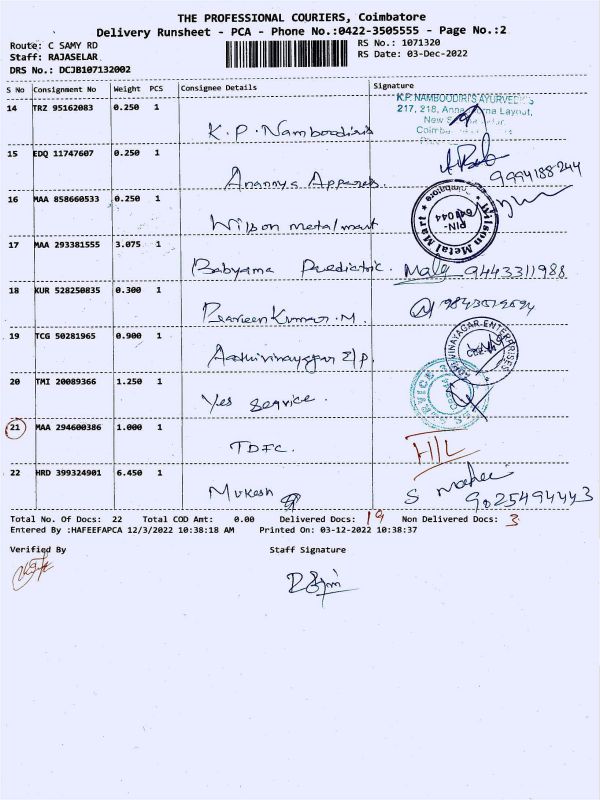 THE PROFESSIONAL COURIERS, Coimbatore
Delivery Runsheet - PCA - Phone No.:0422-3505555 - Page No.:2
Route: C SAMY RD RS No.: 1071320
Staff: RAJASELAR RS Date: 03-Dec-2022
DRS No.: DCJB107132002
S No Consignment No Weight PCS Consignee Details Signature
14 TRZ 95162083 0.250 1
K.P. NAMBOODIRI'S AYURVEDICS
217, 218, Layout,
New
K.P. Namboodiris
15 EDQ 11747607 0.250 1
Ananya Apparels 9994188244
16 MAA 858660533 0.250 1
Wilson metal mart
Wilson Metal Mart
PIN-
641044
17 MAA 293381555 3.075 1
Babyama Paediatric 9443311988
18 KUR 528250835 0.300 1
Praveen Kumar. M
19 TCG 50281965 0.900 1
VINAYAGAR ENTERPRISES
Aathivinayagar E/p.
20 TMI 20089366 1.250 1
SERVICE
Yes Service.
21 MAA 294600386 1.000 1
TDFC.
22 HRD 399324901 6.450 1
Mukesh S 9025494443
Total No. Of Docs: 22 Total COD Amt: 0.00 Delivered Docs: 19 Non Delivered Docs: 3
Entered By :HAFEEFAPCA 12/3/2022 10:38:18 AM Printed On: 03-12-2022 10:38:37
Verified By Staff Signature